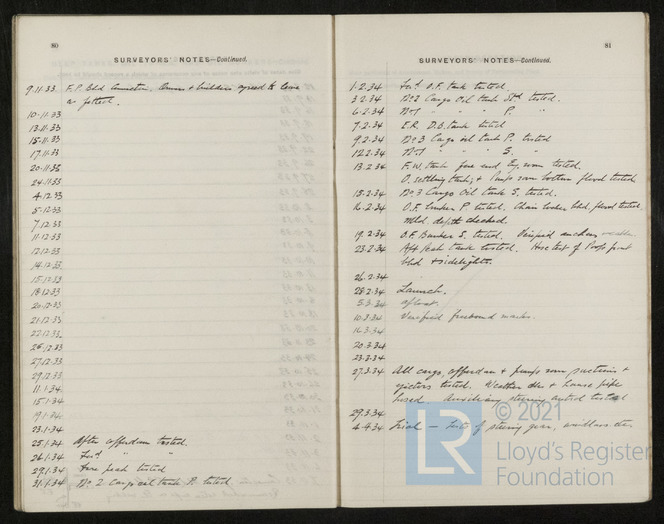 80
SURVEYORS' NOTES—Continued.
9.11.33 F.P. Bhd connection. Owners & builders agreed to leave
as fitted.
10.11.33
13.11.33
15.11.33
17.11.33
20.11.33
24.11.33
4.12.33
5.12.33
7.12.33
11.12.33
12.12.33
14.12.33
15.12.33
18.12.33
20.12.33
21.12.33
22.12.33
26.12.33
27.12.33
29.12.33
11.1.34
15.1.34
19.1.34
23.1.34
25.1.34 After cofferdam tested.
26.1.34 For'd " "
29.1.34 Fore peak tested
31.1.34 No. 2 Cargo oil tank P. tested
81
SURVEYORS' NOTES—Continued.
1.2.34 For'd O.F. tank tested
3.2.34 No 2 Cargo Oil tank Stbd tested.
6.2.34 No 1 " " " P. "
7.2.34 E.R. D.B. tank tested
9.2.34 No 3 Cargo oil tank P. tested
12.2.34 No 1 " " " S. "
13.2.34 F.W. tank fore end Eng. room tested.
O. settling tanks & Pump room bottom flood tested
15.2.34 No. 3 Cargo Oil tank S. tested.
16.2.34 O.F. bunker P tested. Chain locker bhd flood tested
Mld. depth checked.
19.2.34 O.F. Bunker S. tested. Verified anchors
23.2.34 Aft peak tank tested. Hose test of Poop front
bhd & sidelights.
26.2.34
28.2.34 Launch.
5.3.34 afloat.
10.3.34 Verified freeboard marks.
16.3.34
20.3.34
23.3.34
27.3.34 All cargo, cofferdam & pump room suctions &
ejectors tested. Weather dks & hawse pipe
hosed. Auxiliary steering tested
29.3.34
4.4.34 Trial — test of steering gear, windlass etc.
© 2021
LR
Lloyd's Register
Foundation